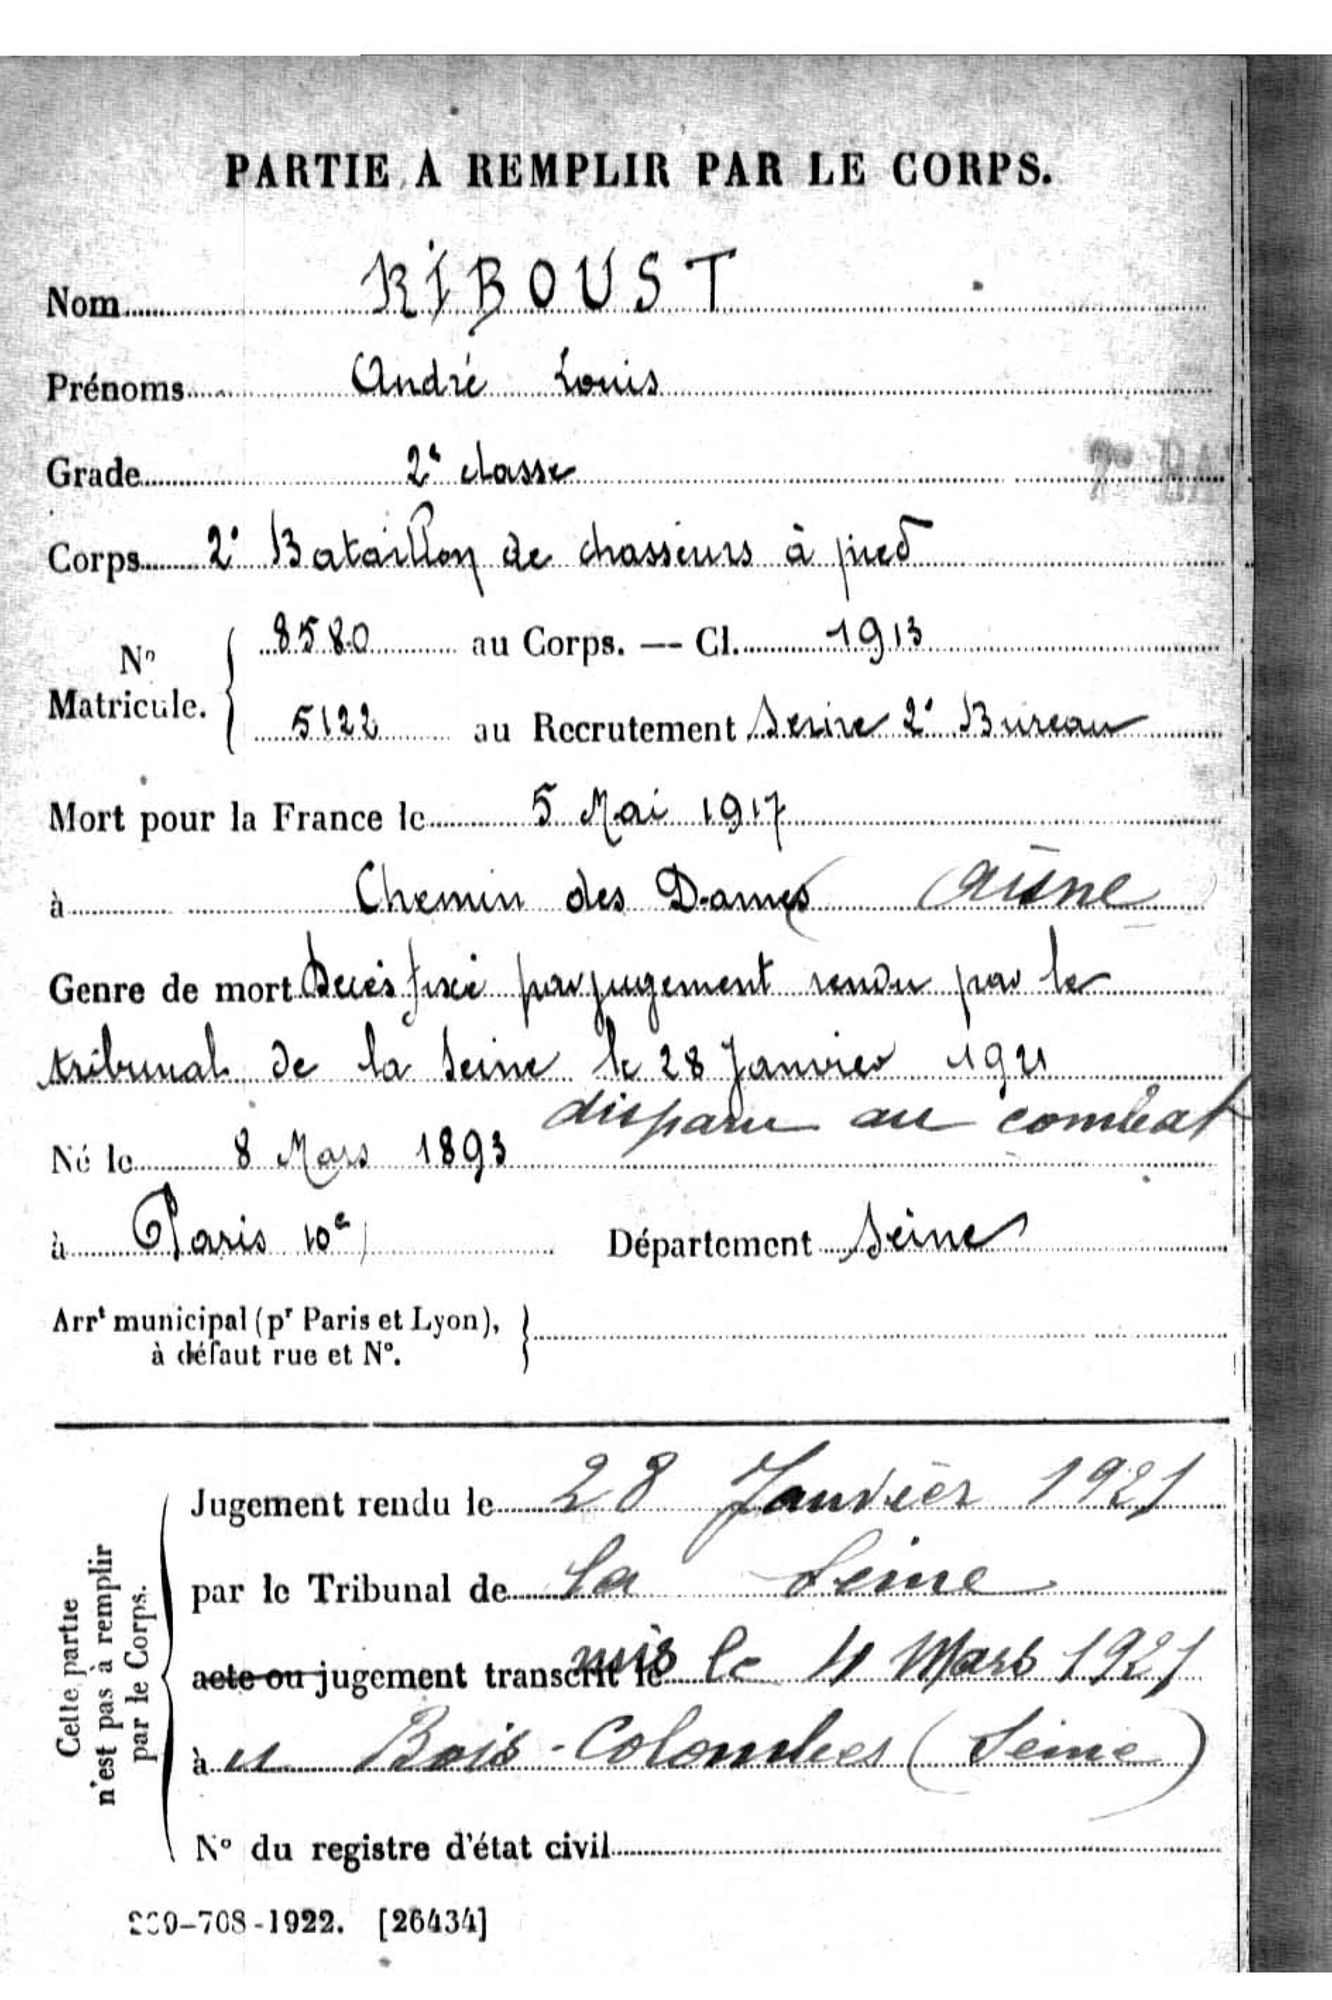 PARTIE A REMPLIR PAR LE CORPS.
Nom RIBOUST
Prénoms André Louis
Grade 2e classe
Corps 2e Bataillon de chasseurs à pied
No Matricule. { 8580 au Corps. — Cl. 1913
5122 au Recrutement Seine 2e Bureau
Mort pour la France le 5 Mai 1917
à Chemin des Dames (Aisne
Genre de mort Décès fixé par jugement rendu par le
tribunal de la Seine le 28 Janvier 1921
disparu au combat
Né le 8 Mars 1893
à Paris 10e Département Seine
Arrt municipal (pr Paris et Lyon), }
à défaut rue et No.
Cette partie
n'est pas à remplir
par le Corps.
Jugement rendu le 28 Janvier 1921
par le Tribunal de la Seine
acte ou jugement transcrit le le 4 Mars 1921
à Bois-Colombes (Seine)
No du registre d'état civil
-708-1922. [26434]